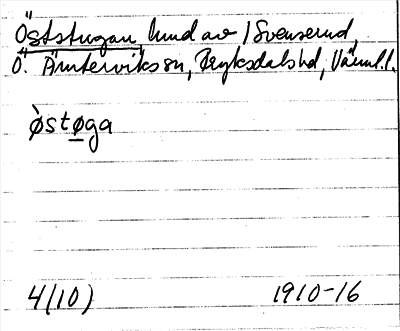 Öststugan hmd av 1 Svenserud,
Ö. Ämterviks sn, Fryksdals hd, Värml. l.
ø̀støga
4(10) 1910-16